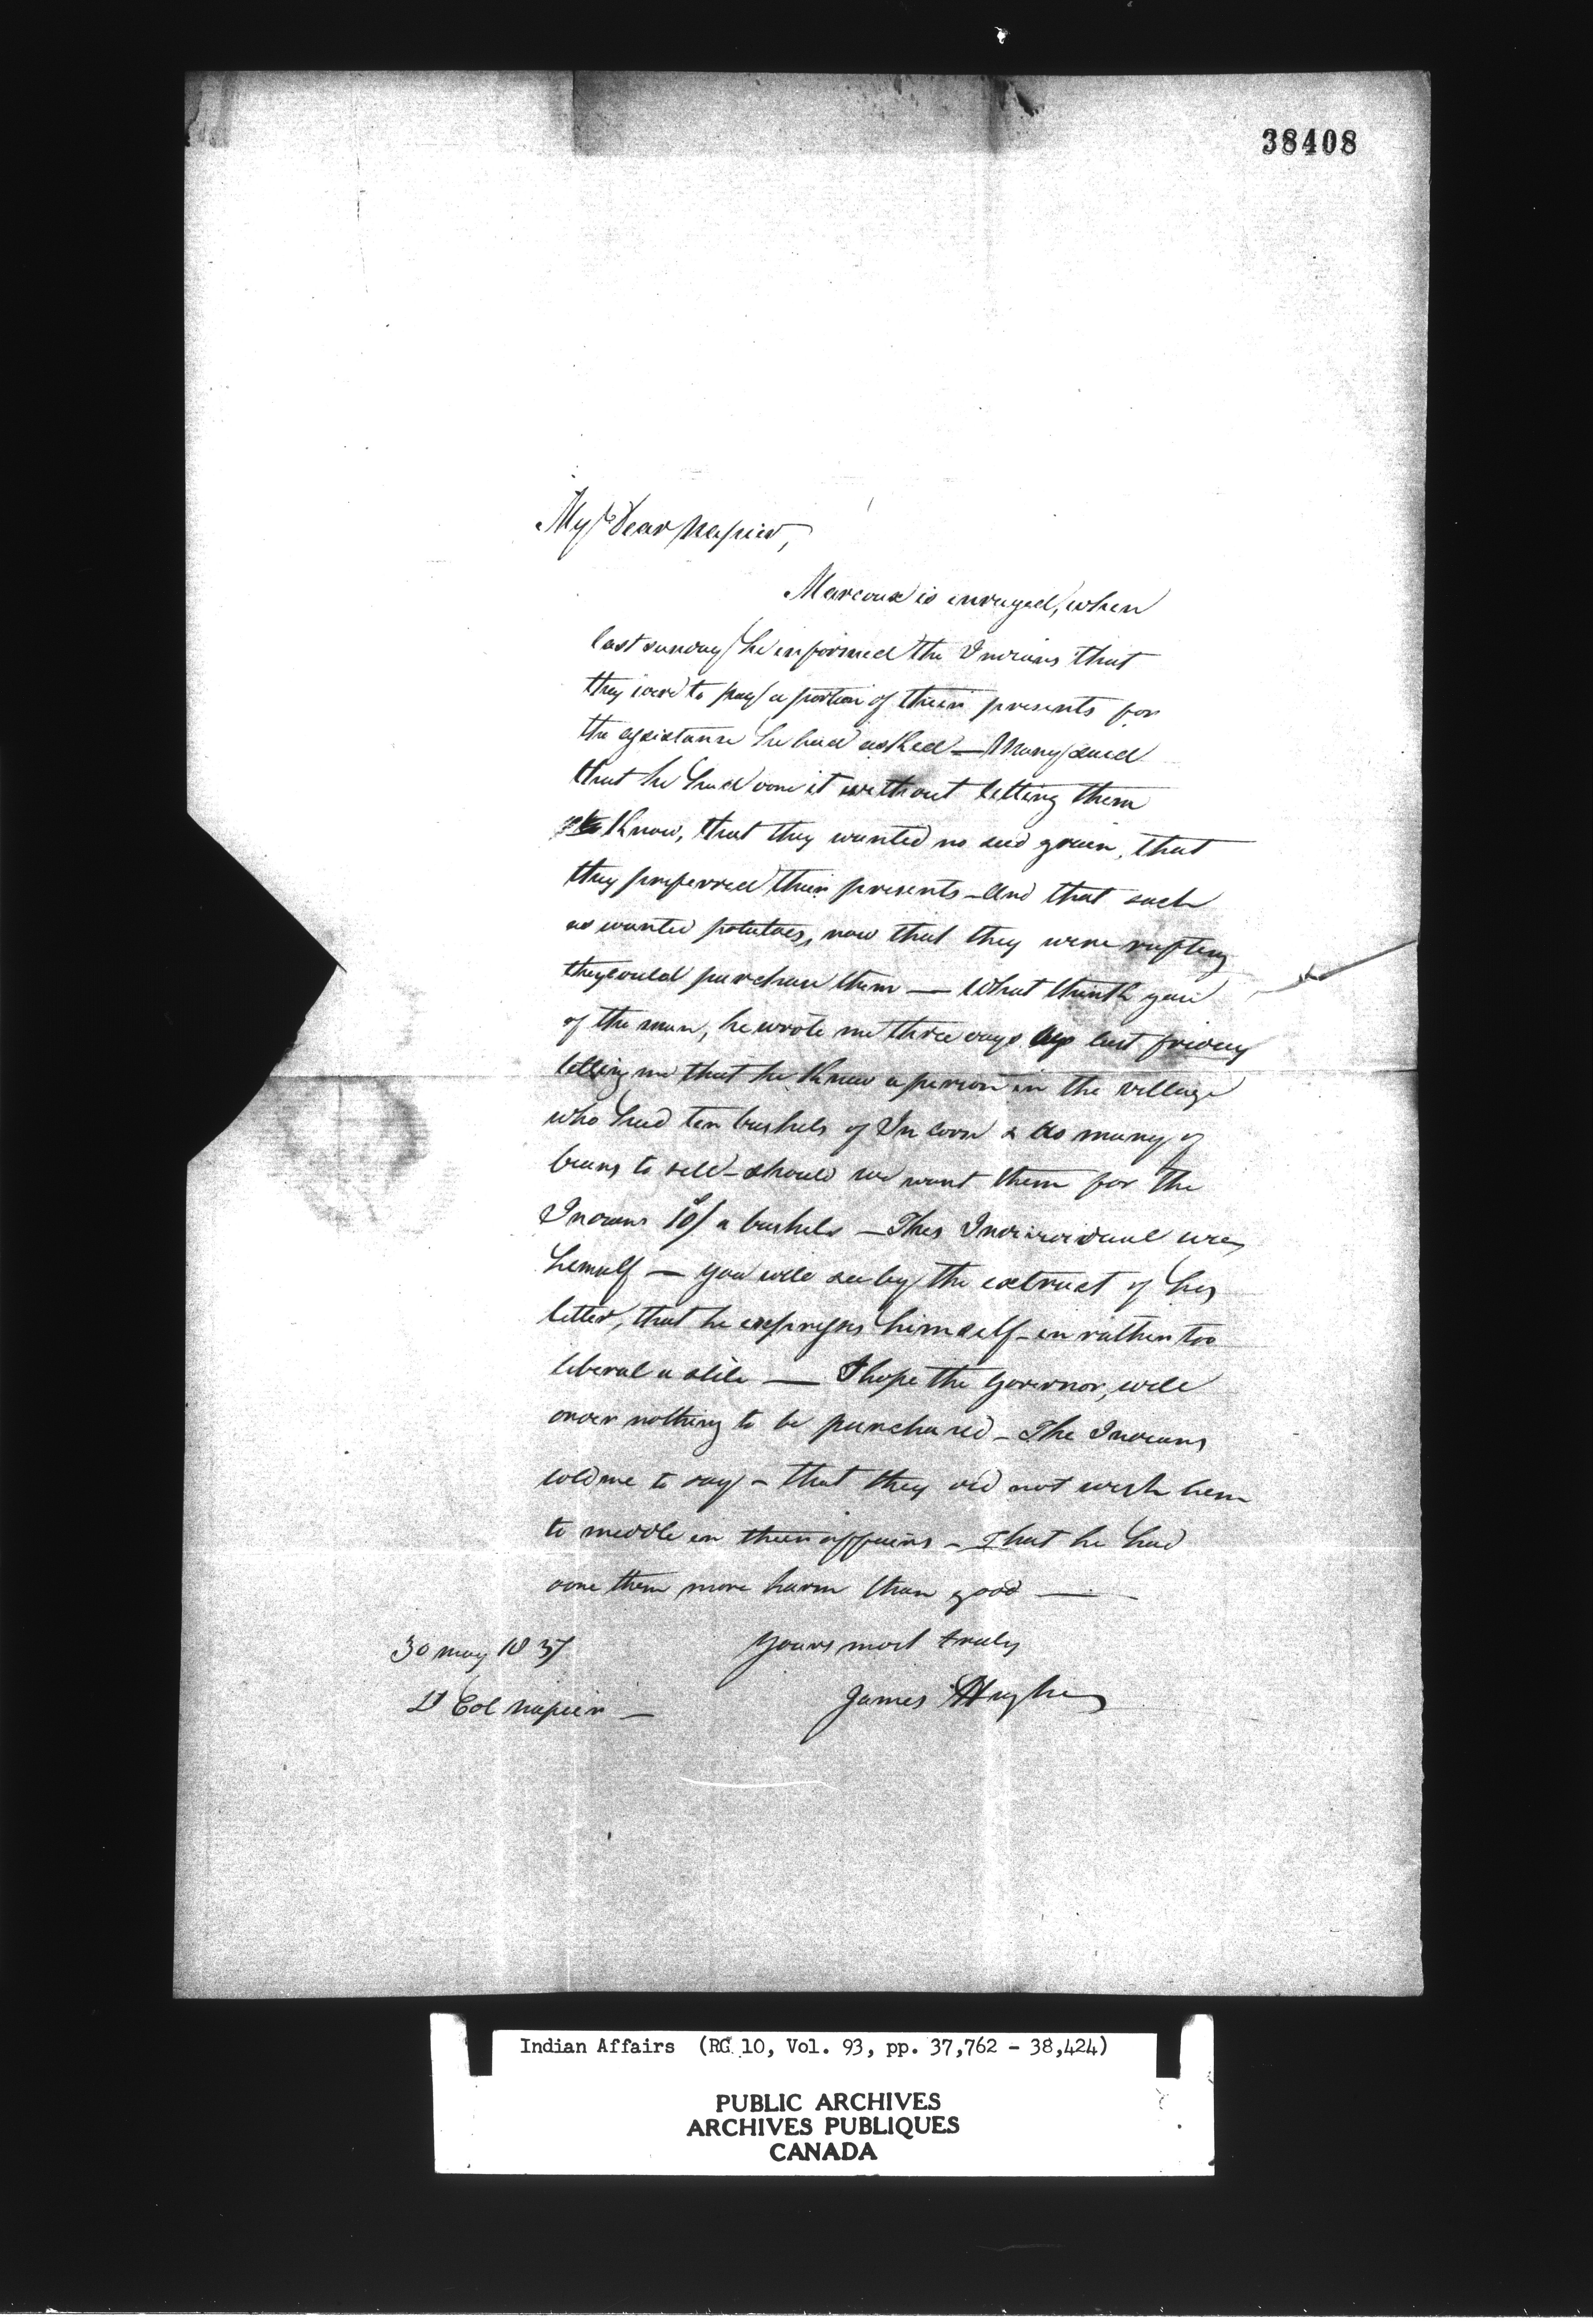 38408
My Dear Napier,
Marcoux is enraged, when
last sunday he informed the Indians that
they were to pay a portion of their presents for
the assistance he had asked — Many said
that he had done it without letting them
know, that they wanted no seed grain, that
they preferred their presents – and that such
as wanted potatoes, now that they were rafting
they could purchase them — What think you
of the man, he wrote me three days ago last friday
telling me that he knew a person in the village
who had ten bushels of In Corn & as many of
beans to sell – should we want them for the
Indians 10/ a bushels – This Individual was
himself — you will see by the extract of his
letter, that he expresses himself – in rather too
liberal a stile — I hope the Governor, will
order nothing to be purchased – The Indians
told me to say – that they did not wish him
to meddle in their affairs – that he had
done them more harm than good —
Yours most truly
30 may 1837
James Hughes
Lt Col Napier —
Indian Affairs (RG 10, Vol. 93, pp. 37,762 - 38,424)
PUBLIC ARCHIVES
ARCHIVES PUBLIQUES
CANADA